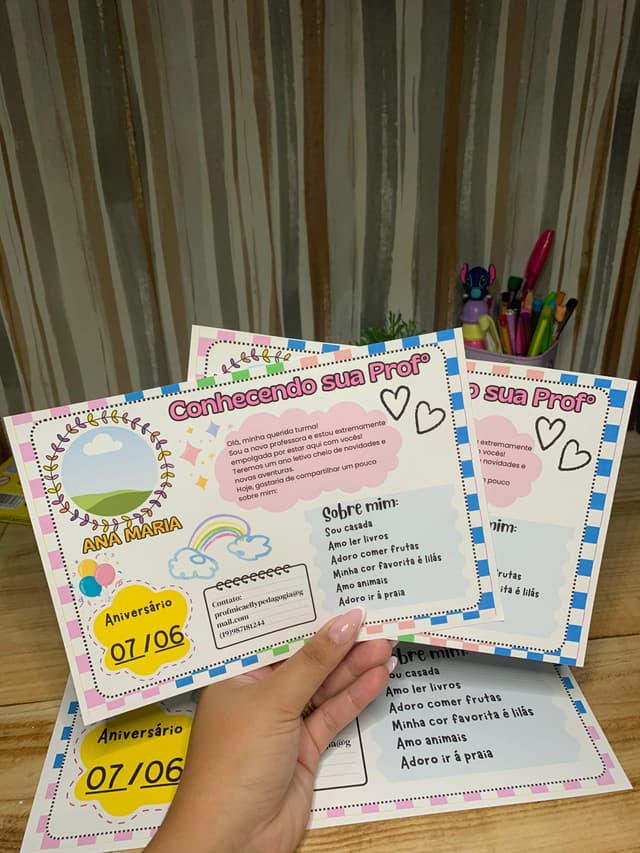 Conhecendo sua Profº
Olá, minha querida turma!
Sou a nova professora e estou extremamente
empolgada por estar aqui com vocês!
Teremos um ano letivo cheio de novidades e
novas aventuras.
Hoje, gostaria de compartilhar um pouco
sobre mim:
ANA MARIA
Sobre mim:
Sou casada
Amo ler livros
Adoro comer frutas
Minha cor favorita é lilás
Amo animais
Adoro ir á praia
Aniversário
07/06
Contato:
profmicaellypedagogia@g
mail.com
(19)987181244
o sua Profº
extremamente
vocês!
novidades e
pouco
mim:
utas
ta é lilás
bre mim:
ou casada
Amo ler livros
Adoro comer frutas
Minha cor favorita é lilás
Amo animais
Adoro ir á praia
Aniversário
07/06
ia@g